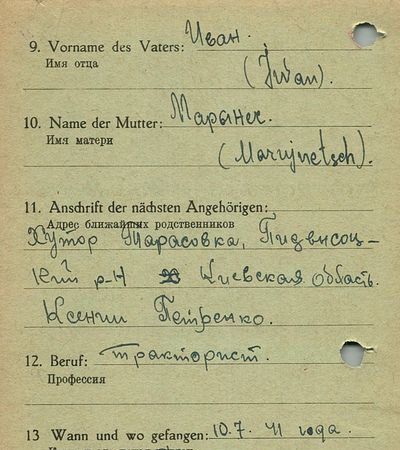 9. Vorname des Vaters: Иван.
Имя отца
(Iwan).
10. Name der Mutter: Марынец.
Имя матери
(Marujnetsch).
11. Anschrift der nächsten Angehörigen:
Адрес ближайших родственников
Хутор Тарасовка, Пидвисоц-
кий р-н Киевская область.
Ксении Петренко.
12. Beruf: тракторист.
Профессия
13 Wann und wo gefangen: 10.7. 41 года.